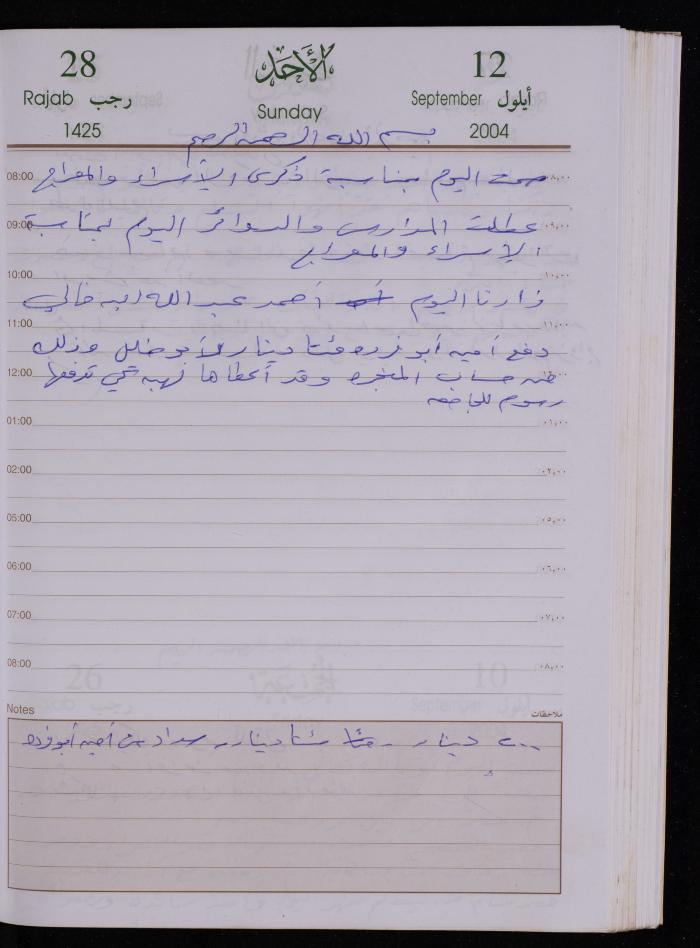 28 الأحد 12
Rajab رجب Sunday September أيلول
1425 2004
بسم الله الرحمن الرحيم
08:00 صمت اليوم بمناسبة ذكرى الإسراء والمعراج ٠٨,٠٠
09:00 عطلت المدارس والدوائر اليوم بمناسبة ٠٩,٠٠
الإسراء والمعراج
10:00 ١٠,٠٠
زارنا اليوم أحمد عبد الله ابن خالي
11:00 ١١,٠٠
دفع أمين أبو فرده مئتا دينار لأبو فضل وذلك
12:00 من حساب المنجره وقد أعطاها لهبه كي تدفعها
رسوم للجامعه
01:00 ٠١,٠٠
02:00 ٠٢,٠٠
05:00 ٠٥,٠٠
06:00 ٠٦,٠٠
07:00 ٠٧,٠٠
08:00 ٠٨,٠٠
Notes ملاحظات
٢٠٠ دينار مئتا دينار سداد من أمين أبو فرده